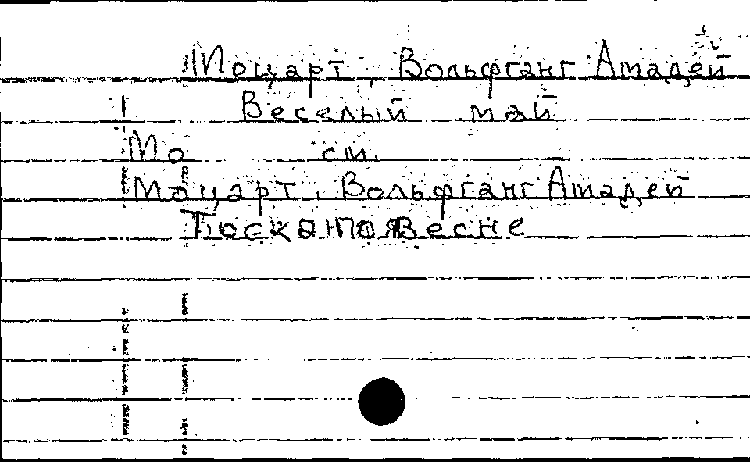 Моцарт, Вольфганг Амадей
Веселый май
Мо см.
Моцарт, Вольфганг Амадей
Тоска по весне